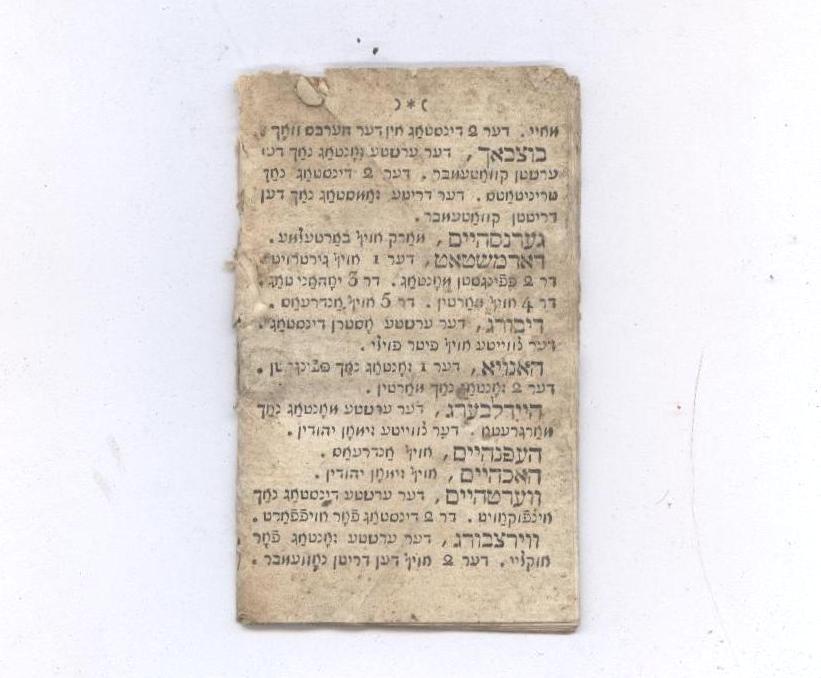 (*)
מאיי. דער 2 דינסטאג אין דער הערבס וואך.
בוצבאך, דער ערשטע זונטאג נאך דעם
ערשטן קוואטעמבר. דער 2 דינסטאג נאך
טריניטאטס. דער דריטע זאמסטאג נאך דען
דריטטן קוואטעמבר.
גערנסהיים, מארק אויף בארטעלמע.
דארמשטאט, דער 1 אויף גירטרויט.
דר 2 פפינגסטן מאנטאג. דר 3 יאהאני טאג.
דר 4 אויף מארטין. דר 5 אויף אנדרעאס.
דיבורג, דער ערשטע אסטרן דינסטאג.
דער צווייטע אויף פיטר פויל.
האנויא, דער 1 זונטאג נאך
דער 2 זונטאג נאך מארטין.
היידלבערג, דער ערשטע מאנטאג נאך
מארגרעטא. דער צווייטע זימאן יהודין.
העפנהיים, אויף אנדרעאס.
האכהיים, אויף זימאן יהודין.
ווערטהיים, דער ערשטע דינסטאג נאך
דר 2 דינסטאג פאר אויפפארט.
ווירצבורג, דער ערשטע זונטאג פאר
אוקליי. דער 2 אויף דען דריטן נאוועמבר.